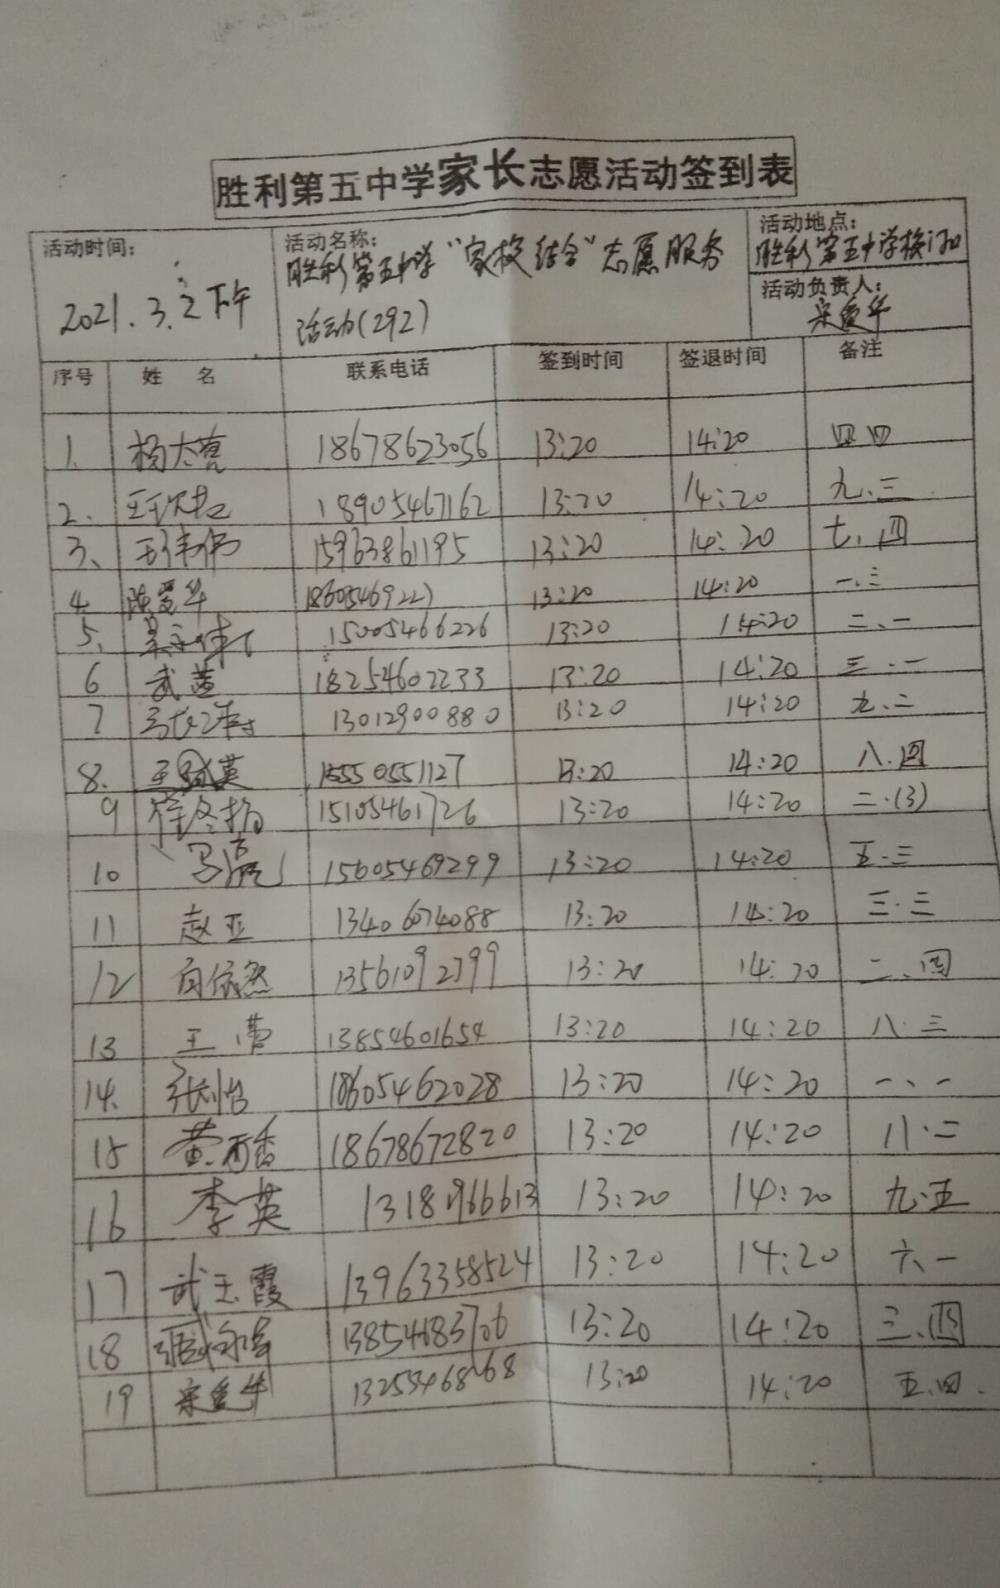 胜利第五中学家长志愿活动签到表
活动时间:
2021.3.2下午
活动名称:
胜利第五中学“家校结合”志愿服务
活动(292)
活动地点:
胜利第五中学校门口
活动负责人:
宋爱华
序号 姓 名 联系电话 签到时间 签退时间 备注
1. 杨大亮 18678623056 13:20 14:20 四四
2. 18905467162 13:20 14:20 九.三
3、 15963861195 13:20 14:20 七.四
4. 陈爱华 18605469227 13:20 14:20 一.三
5、 15005466226 13:20 14:20 二.一
6 武茜 18254602233 13:20 14:20 三.一
7 13012900880 13:20 14:20 九.二
8. 15550551127 13:20 14:20 八.四
9 15105461726 13:20 14:20 二.(3)
10 15605469299 13:20 14:20 五.三
11 赵亚 13406074088 13:20 14:20 三.三
12 向依然 13561092799 13:20 14:20 二、四
13 王 13854601654 13:20 14:20 八.三
14. 张怡 18605462028 13:20 14:20 一、一
15 黄丽香 18678672820 13:20 14:20 八.二
16 李英 1318966613 13:20 14:20 九.五
17 武玉霞 13963358524 13:20 14:20 六一
18 13:20 14:20 三.四
19 宋爱华 13255468168 13:20 14:20 五.四.